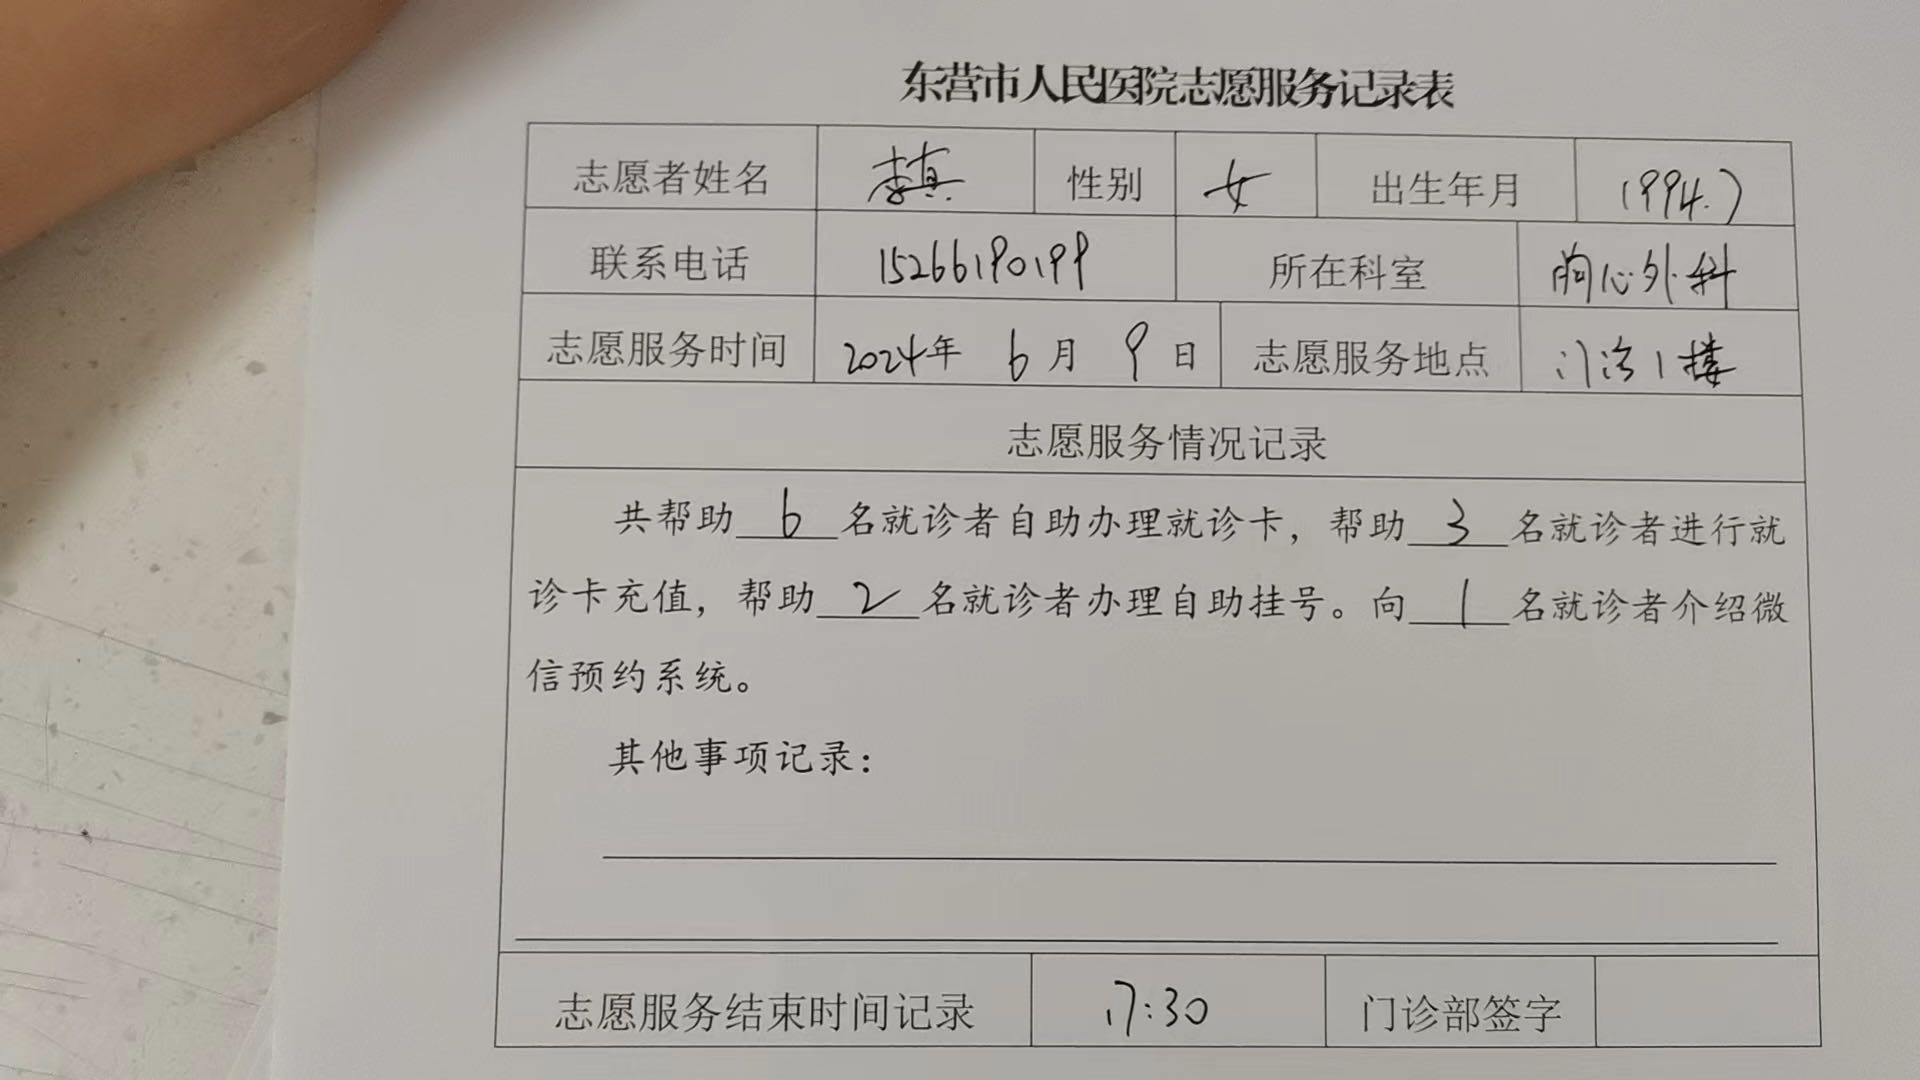 东营市人民医院志愿服务记录表
志愿者姓名 李真 性别 女 出生年月 1994.7
联系电话 15266190199 所在科室 胸心外科
志愿服务时间 2024年 6月 9日 志愿服务地点 门诊1楼
志愿服务情况记录
共帮助 6 名就诊者自助办理就诊卡，帮助 3 名就诊者进行就
诊卡充值，帮助 2 名就诊者办理自助挂号。向 1 名就诊者介绍微
信预约系统。
其他事项记录：
志愿服务结束时间记录 17:30 门诊部签字